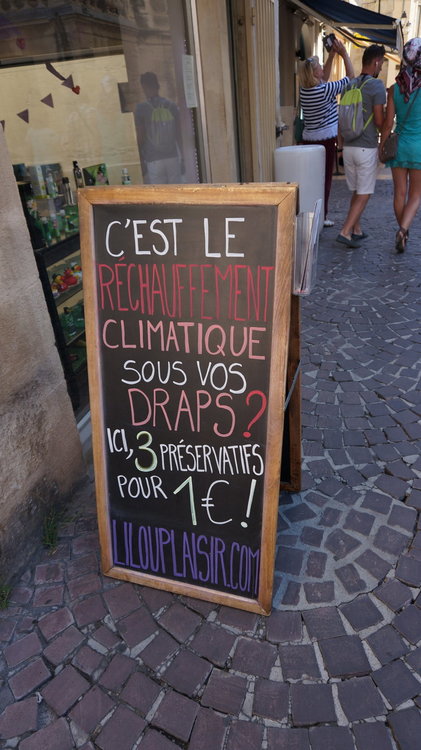 C'EST LE
RÉCHAUFFEMENT
CLIMATIQUE
SOUS VOS
DRAPS?
ICI, 3 PRÉSERVATIFS
POUR 1€!
LILOUPLAISIR.COM